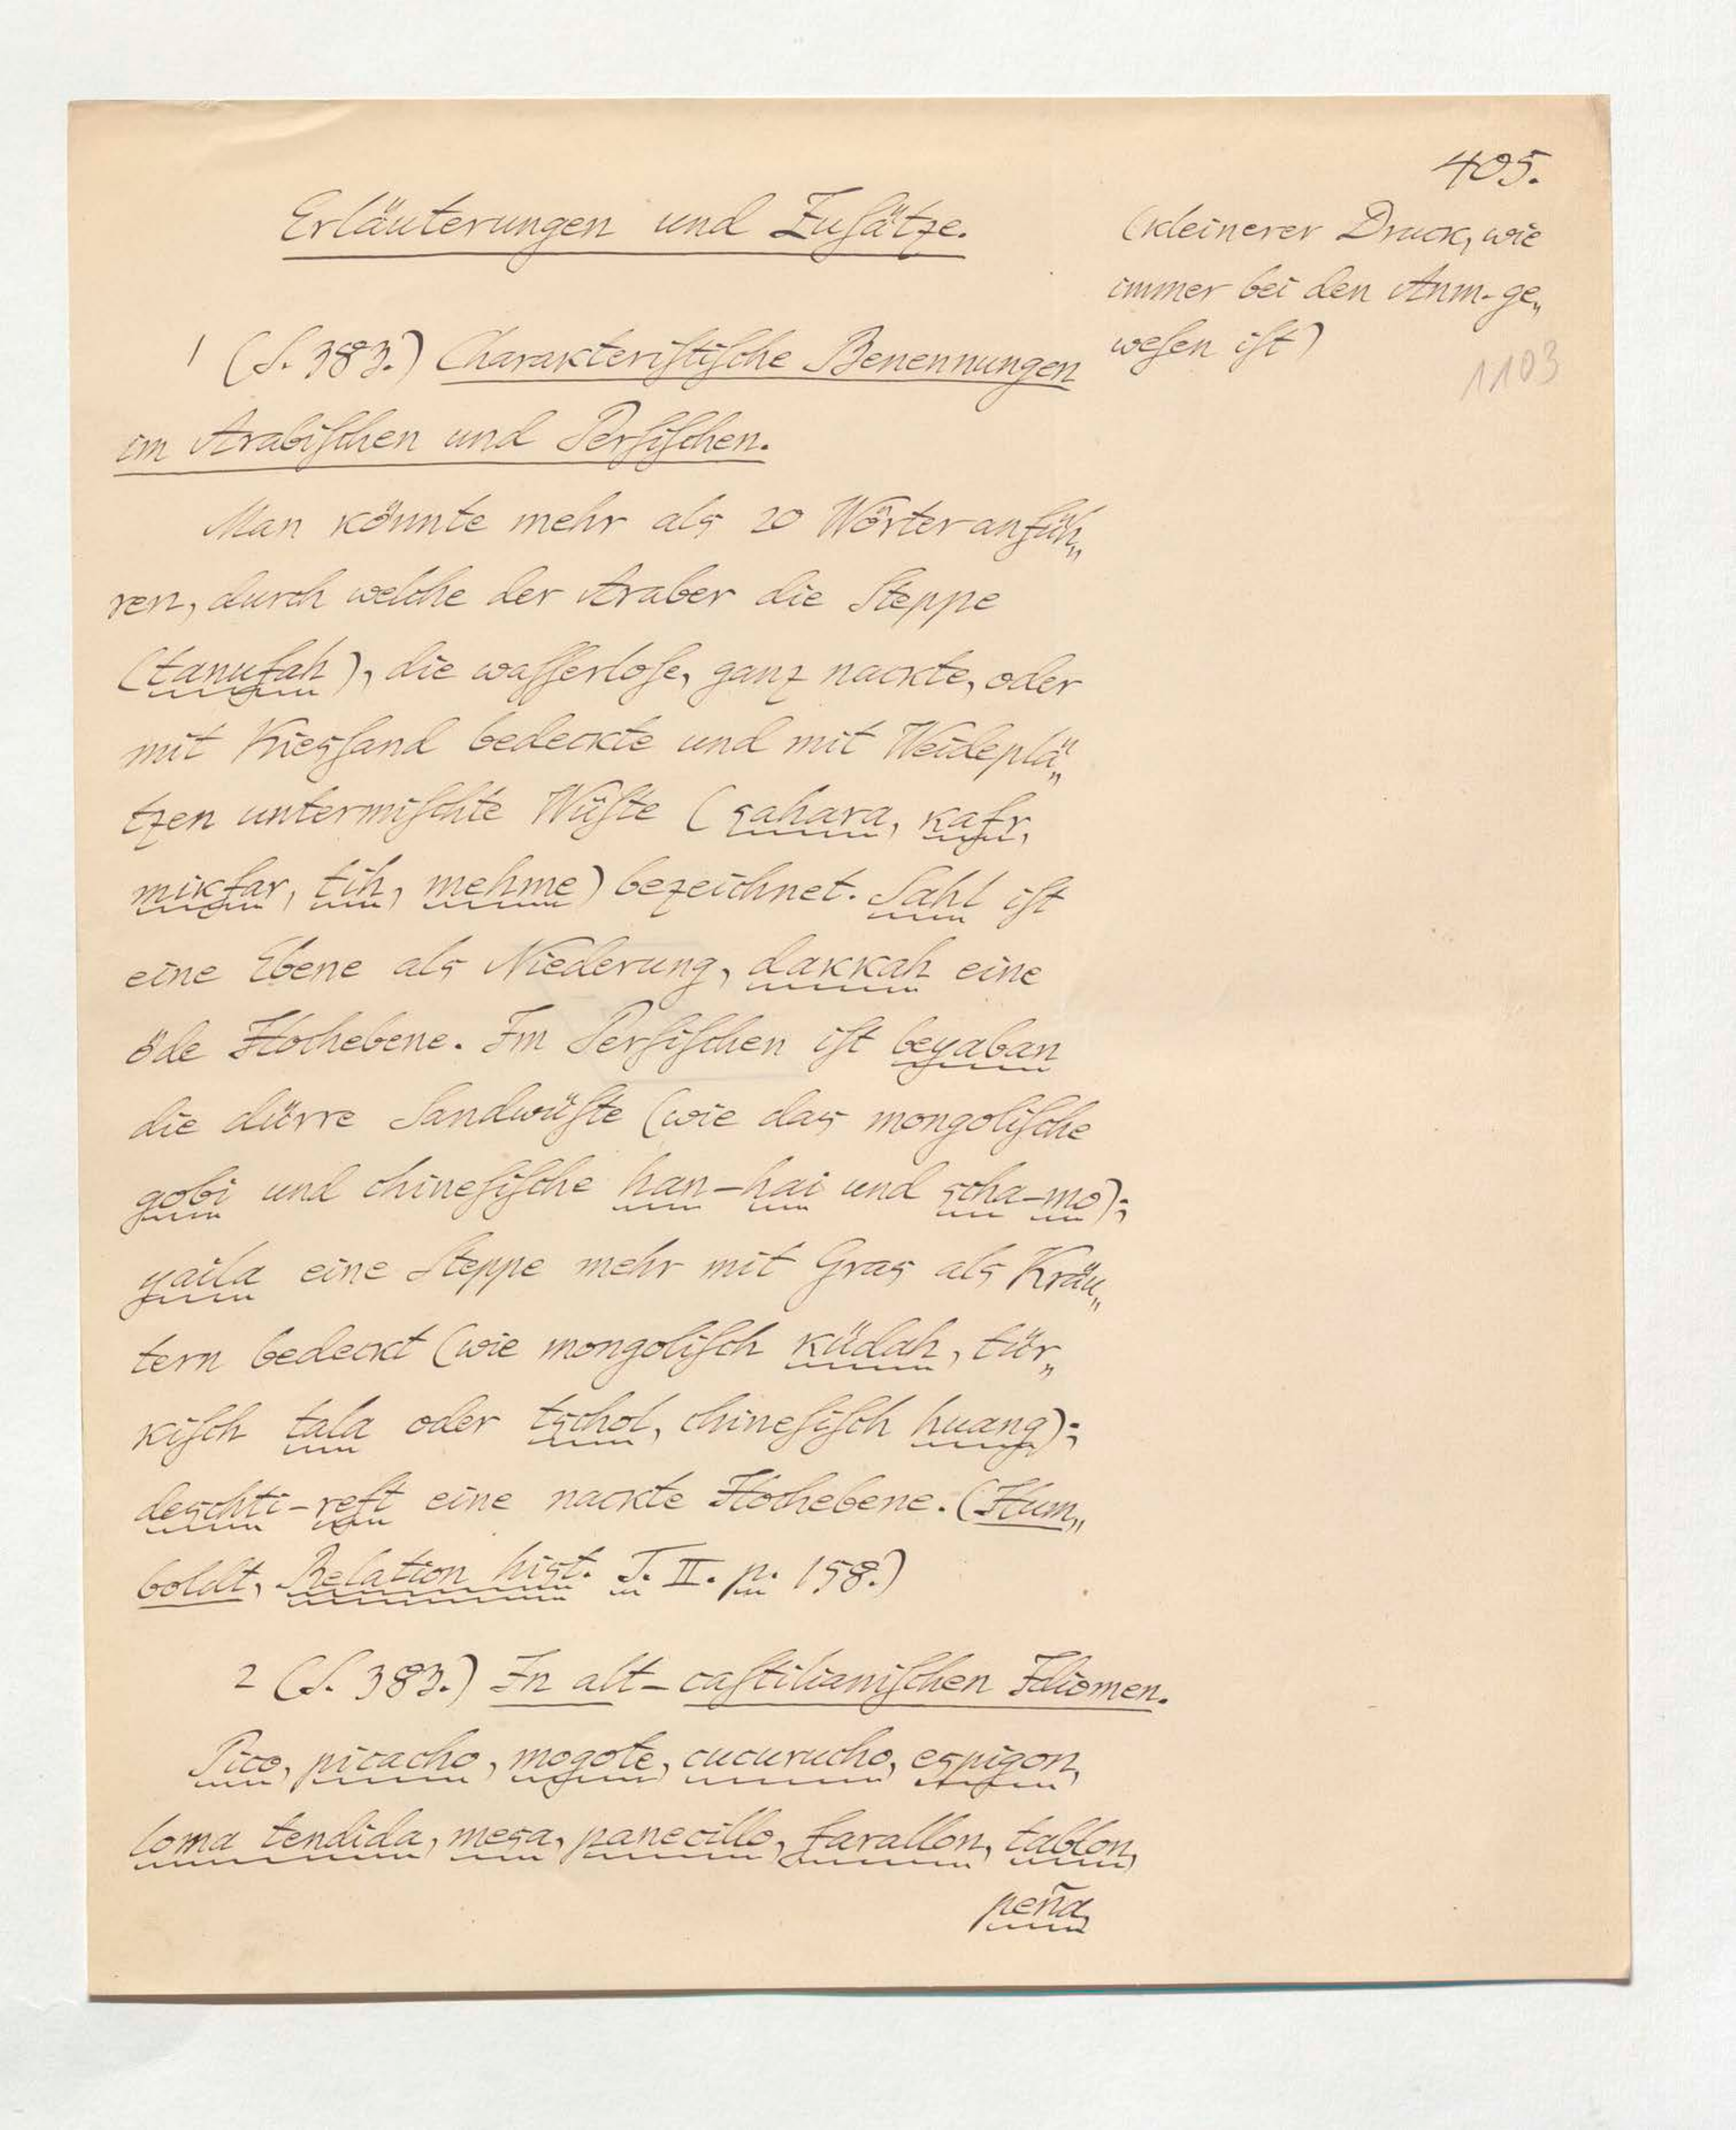 405.
Erläuterungen und Zusätze.
(kleinerer Druck, wie
immer bei den Anm. ge„
wesen ist)
1103
1 (S. 383.) Charakteristische Benennungen
im Arabischen und Persischen.
Man könnte mehr als 20 Wörter anfüh„
ren, durch welche der Araber die Steppe
(tanufah), die wasserlose, ganz nackte, oder
mit Kiessand bedeckte und mit Weideplä„
tzen untermischte Wüste (sahara, kafr,
mikfar, tih, mehme) bezeichnet. Sahl ist
eine Ebene als Niederung, dakkah eine
öde Hochebene. Im Persischen ist beyaban
die dürre Sandwüste (wie das mongolische
gobi und chinesische han-hai und scha-mo);
yaila eine Steppe mehr mit Gras als Kräu„
tern bedeckt (wie mongolisch küdah, tür„
kisch tala oder tschol, chinesisch huang);
deschti-reft eine nackte Hochebene. (Hum„
boldt, Relation hist. T. II. p. 158.)
2 (S. 383.) In alt-castilianischen Idiomen.
Pico, picacho, mogote, cucurucho, espigon,
loma tendida, mesa, panecillo, farallon, tablon,
peña,